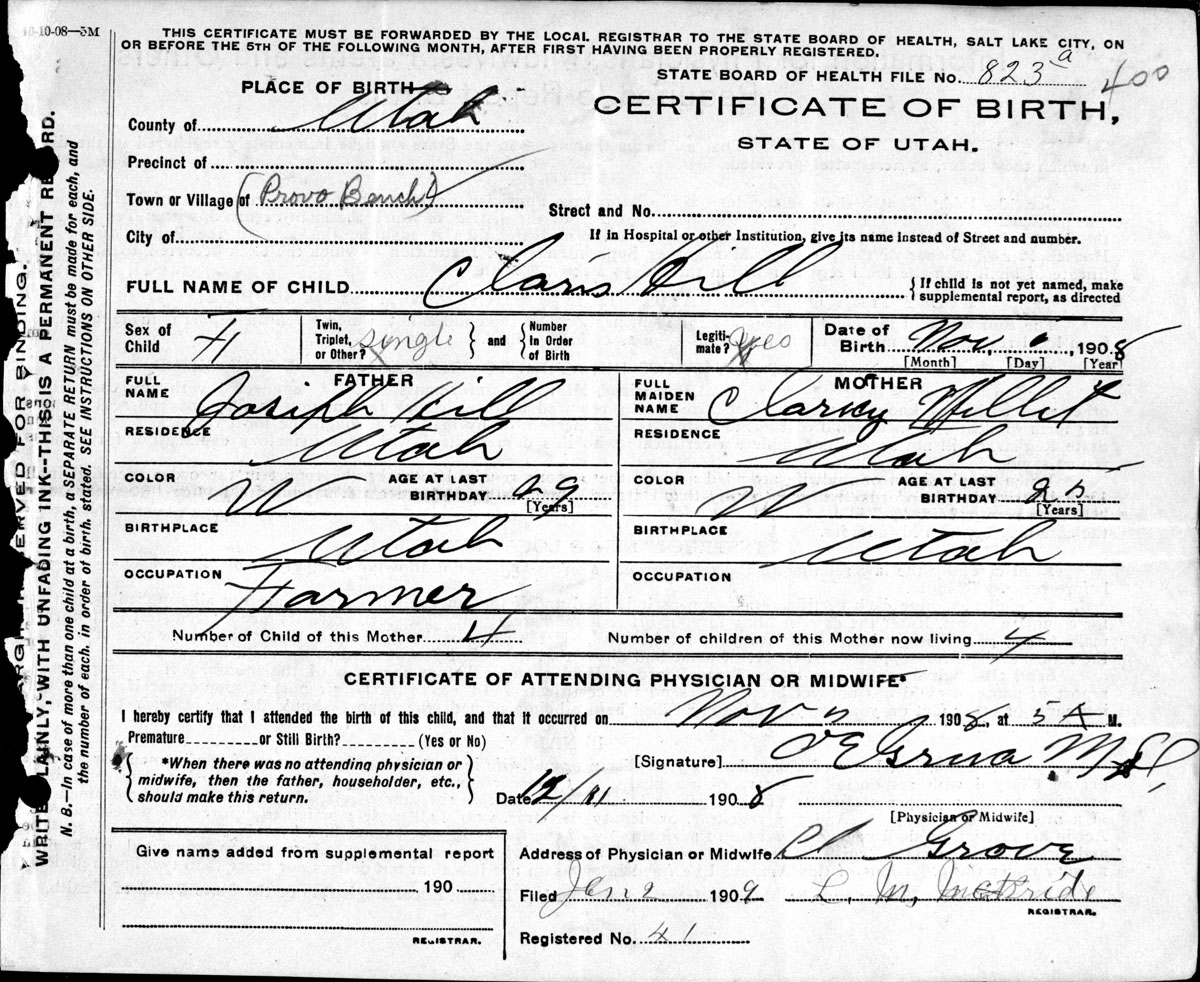 10-10-08—5M
THIS CERTIFICATE MUST BE FORWARDED BY THE LOCAL REGISTRAR TO THE STATE BOARD OF HEALTH, SALT LAKE CITY, ON
OR BEFORE THE 5TH OF THE FOLLOWING MONTH, AFTER FIRST HAVING BEEN PROPERLY REGISTERED.
STATE BOARD OF HEALTH FILE No. 823 a 400
PLACE OF BIRTH
CERTIFICATE OF BIRTH,
STATE OF UTAH.
County of Utah
Precinct of
Town or Village of (Provo Bench)
Street and No.
City of
If in Hospital or other Institution, give its name instead of Street and number.
FULL NAME OF CHILD Claris Hill
{If child is not yet named, make
supplemental report, as directed
Sex of Child F
Twin, Triplet, or Other? single } and { Number In Order of Birth
Legiti- mate? yes
Date of Birth Nov, , 1908
[Month] [Day] [Year]
FATHER
FULL NAME Joseph Hill
RESIDENCE Utah
COLOR W AGE AT LAST BIRTHDAY 29
[Years]
BIRTHPLACE Utah
OCCUPATION Farmer
MOTHER
FULL MAIDEN NAME
RESIDENCE Utah
COLOR W AGE AT LAST BIRTHDAY 25
[Years]
BIRTHPLACE Utah
OCCUPATION
Number of Child of this Mother 4 Number of children of this Mother now living 4
CERTIFICATE OF ATTENDING PHYSICIAN OR MIDWIFE*
I hereby certify that I attended the birth of this child, and that it occurred on Nov , 1908, at 5 A M.
Premature or Still Birth? (Yes or No)
{ *When there was no attending physician or
midwife, then the father, householder, etc.,
should make this return. }
[Signature]
Date 12/11 1908
[Physician or Midwife]
Give name added from supplemental report
190
REGISTRAR.
Address of Physician or Midwife Pl Grove
Filed Jan 2 1909 L. M. McBride
REGISTRAR.
Registered No. 41
MARGIN RESERVED FOR BINDING.
WRITE PLAINLY, WITH UNFADING INK--THIS IS A PERMANENT RECORD.
N. B.—In case of more than one child at a birth, a SEPARATE RETURN must be made for each, and
the number of each, in order of birth, stated. SEE INSTRUCTIONS ON OTHER SIDE.